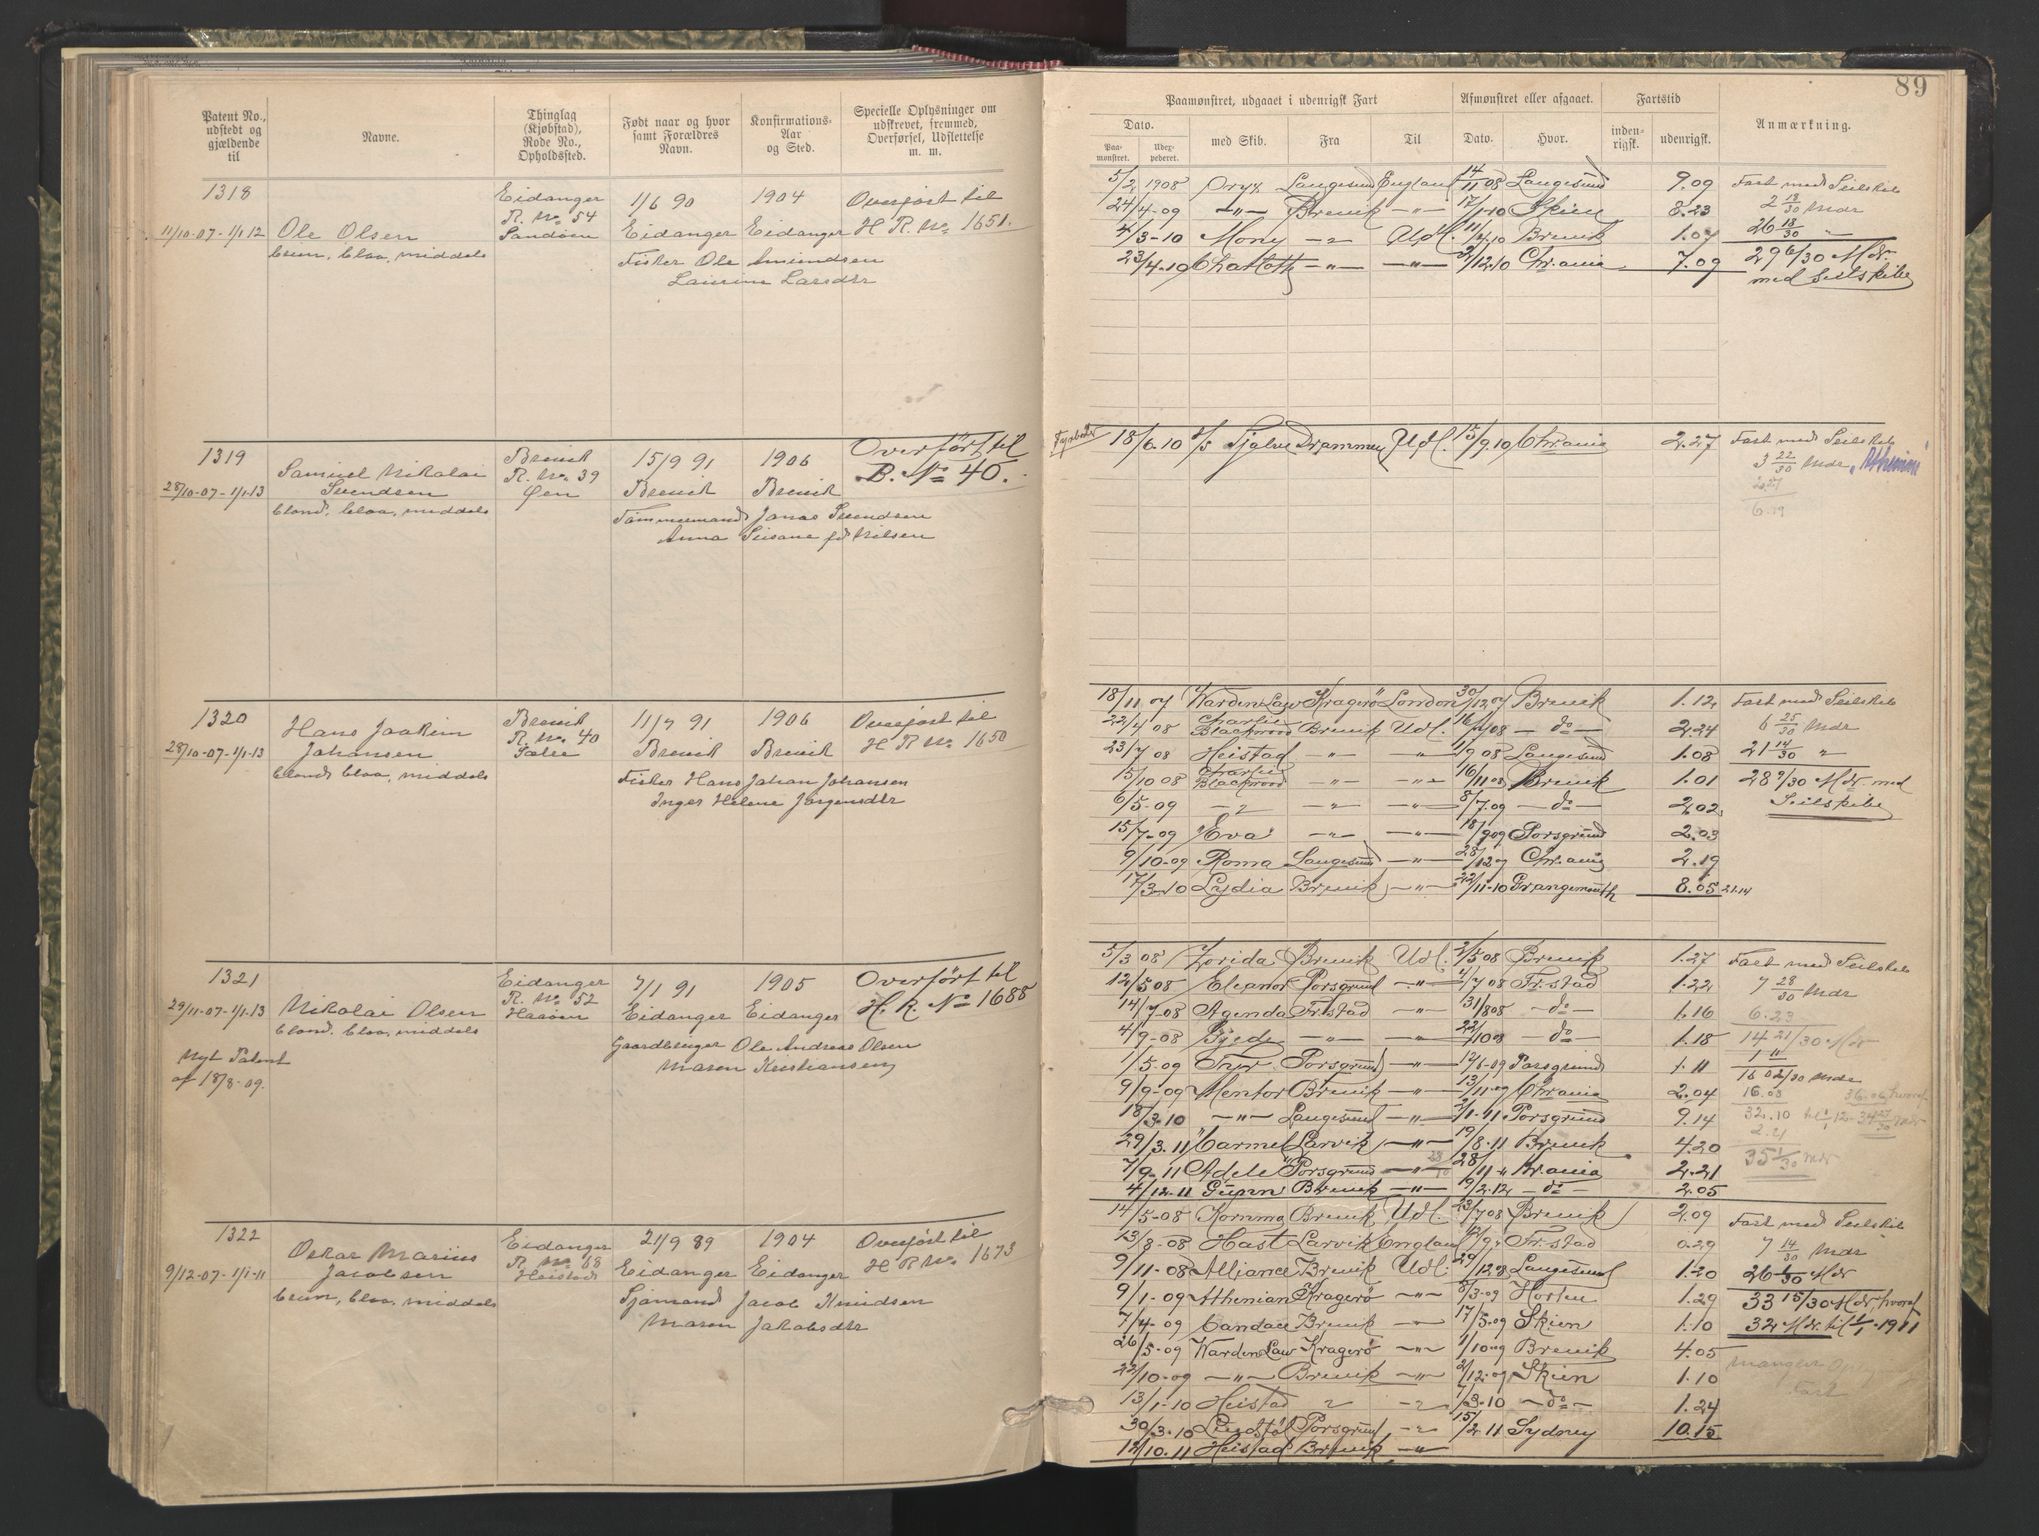 89
Patent No., udstedt og gjældende til
Navne.
Thinglag (Kjøbstad), Rode No., Opholdssted.
Født naar og hvor samt Forældres Navn.
Konfirmations-Aar og Sted.
Specielle Oplysninger om udskrevet, fremmed, Overførsel, Udslettelse m. m.
1318
11/10-07-1/1 12
Ole Olsen
brun, blaa, middels
Eidanger
R. No. 54
Sandøen
1/6 90
Eidanger
1904
Eidanger
Fisker Ole Amundsen
Laurine Larsdtr
Overført til
H R. No. 1651.
1319
28/10-07-1/1-13
Samuel Nikolai
Svendsen
blond, blaa, middels
Brevik
R. No. 39
Øen
15/9 91
Brevik
1906
Brevik
Tømmermand Jonas Svendsen
Anna fd Nilsen
Overført til
B. No 40.
1320
28/10-07-1/1-13
Hans Joakim
Johansen
blond, blaa, middels
Brevik
R. No. 40
11/7 91
Brevik
1906
Brevik
Fisker Hans Johan Johansen
Inger Helene Jørgensdtr
Overført til
H R No 1650
1321
29/11-07-1/1-13
Nikolai Olsen
blond, blaa, middels
Nyt Patent
af 18/8-09.
Eidanger
R. No. 52
Haaøen
7/1 91
Eidanger
1905
Eidanger
Gaardbruger Ole Andreas Olsen
Maren Kristiansen
Overført til
H. R. No 1688
1322
9/12-07-1/1-11
Oskar Marius
Jacobsen
brun, blaa, middels
Eidanger
R. No 68
Heistad
21/9 89
Eidanger
1904
Eidanger
Sjømand Jacob Knudsen
Maren Jakobsdtr
Overført til
H R No. 1673
Paamønstret, udgaaet i udenrigsk Fart
Afmønstret eller afgaaet.
Fartstid
Anmærkning.
Dato.
Paa-mønstret.
Udex-pederet.
med Skib.
Fra
Til
Dato.
Hvor.
inden-rigsk.
udenrigsk.
5/2 1908 Oryx Langesund England 14/11 08 Langesund 9.09 Fart med Seilskib
24/4-09 -"- Brevik -"- 17/1-10 Skien 8.23 2 18/30 Mdr
4/3-10 Mony -"- Udl. 11/4 10 Brevik 1.07 26 18/30 "
23/4-10 Charlotte -"- -"- 2/12.10 Chr.ania 7.09 29 6/30 Mdr
med Seilskibe
Fyrbøter
18/6.10 d/s Tjalve Drammen Udl. 15/9.10 Chr.ania 2.27 Fart med Seilskib
3 22/30 Mdr "Athenian"
2.27
6.19
18/11 07 Warden Law Kragerø London 30/12 07 Brevik 1.12 Fart med Seilskib
22/4 08 Charlie Blackwood Brevik Udl. 16/7 08 -do- 2.24 6 25/30 Mdr
23/7 08 Heistad " " 1/9 08 Langesund 1.08 21 14/30 "
15/10 08 Charlie Blackwood " -"- 16/11 08 Brevik 1.01 28 9/30 Mdr med
6/5-09 -"- -"- -"- 8/7.09 -do- 2.02 Seilskibe
15/7-09 "Eva" -"- -"- 18/9 09 Porsgrund 2.03
9/10-09 Roma Langesund -"- 28/12 09 Chr.ania 2.19
17/3-10 Lydia Brevik -"- 22/11-10 Grangemouth 8.05 21.14
5/3 08 Zorida Brevik Udl. 2/5 08 Brevik 1.27 Fart med Seilskib
12/5 08 Eleanor Porsgrund -"- 4/7 08 Fr.stad 1.22 7 28/30 Mdr
14/7-08 Agenda Fr.stad -"- 31/8 08 -do- 1.16 6.23
4/9-08 -"- -"- 22/10 08 -do- 1.18 14 21/30 Mdr
1/5-09 Tyr Porsgrund -"- 12/6-09 Porsgrund 1.11 1 11
9/9-09 Mentor Brevik -"- 13/11-09 Chr.ania 2.04 16 02/30 Mdr
18/3.10 -"- Langesund -"- 2/1.11 Porsgrund 9.14 16.08 36.06 hvoraf
29/3.11 "Carmel Larvik -"- 19/8.11 Brevik 4.20 32.10 til 1/1 12-34 27/30 Mdr
7/9-11 Adele Porsgrund -"- 28/11 11 Kr.ania 2.21 2.21
4/12-11 Brevik -"- 9/2.12 -do- 2.05 35 1/30 Mdr
14/5-08 Komma Brevik Udl. 23/7 08 Brevik 2.09 Fart med Seilskib
13/8-08 Hast Larvik England Fr.stad 0.29 7 14/30 Mdr
9/11-08 Alliance Brevik Udl. 29/12 08 Langesund 1.20 26 1/30 Mdr
9/1-09 Athenian Kragerø -"- 8/3-09 Horten 1.29 33 15/30 Mdr, hvoraf
7/4-09 Candace Brevik -"- 17/5-09 Skien 1.10 32 Mdr. til 1/1-1911
26/5-09 Warden Law Kragerø -"- 1/10-09 Brevik 4.05
22/10-09 -"- Brevik -"- 2/12.09 Skien 1.10 mangler
13/1-10 Heistad " -"- 7/3-10 -do- 1.24 Fart
30/3.10 Lindstøl Porsgrund -"- 15/2.11 Sydney 10.15
12/10.11 Heistad Brevik -"-